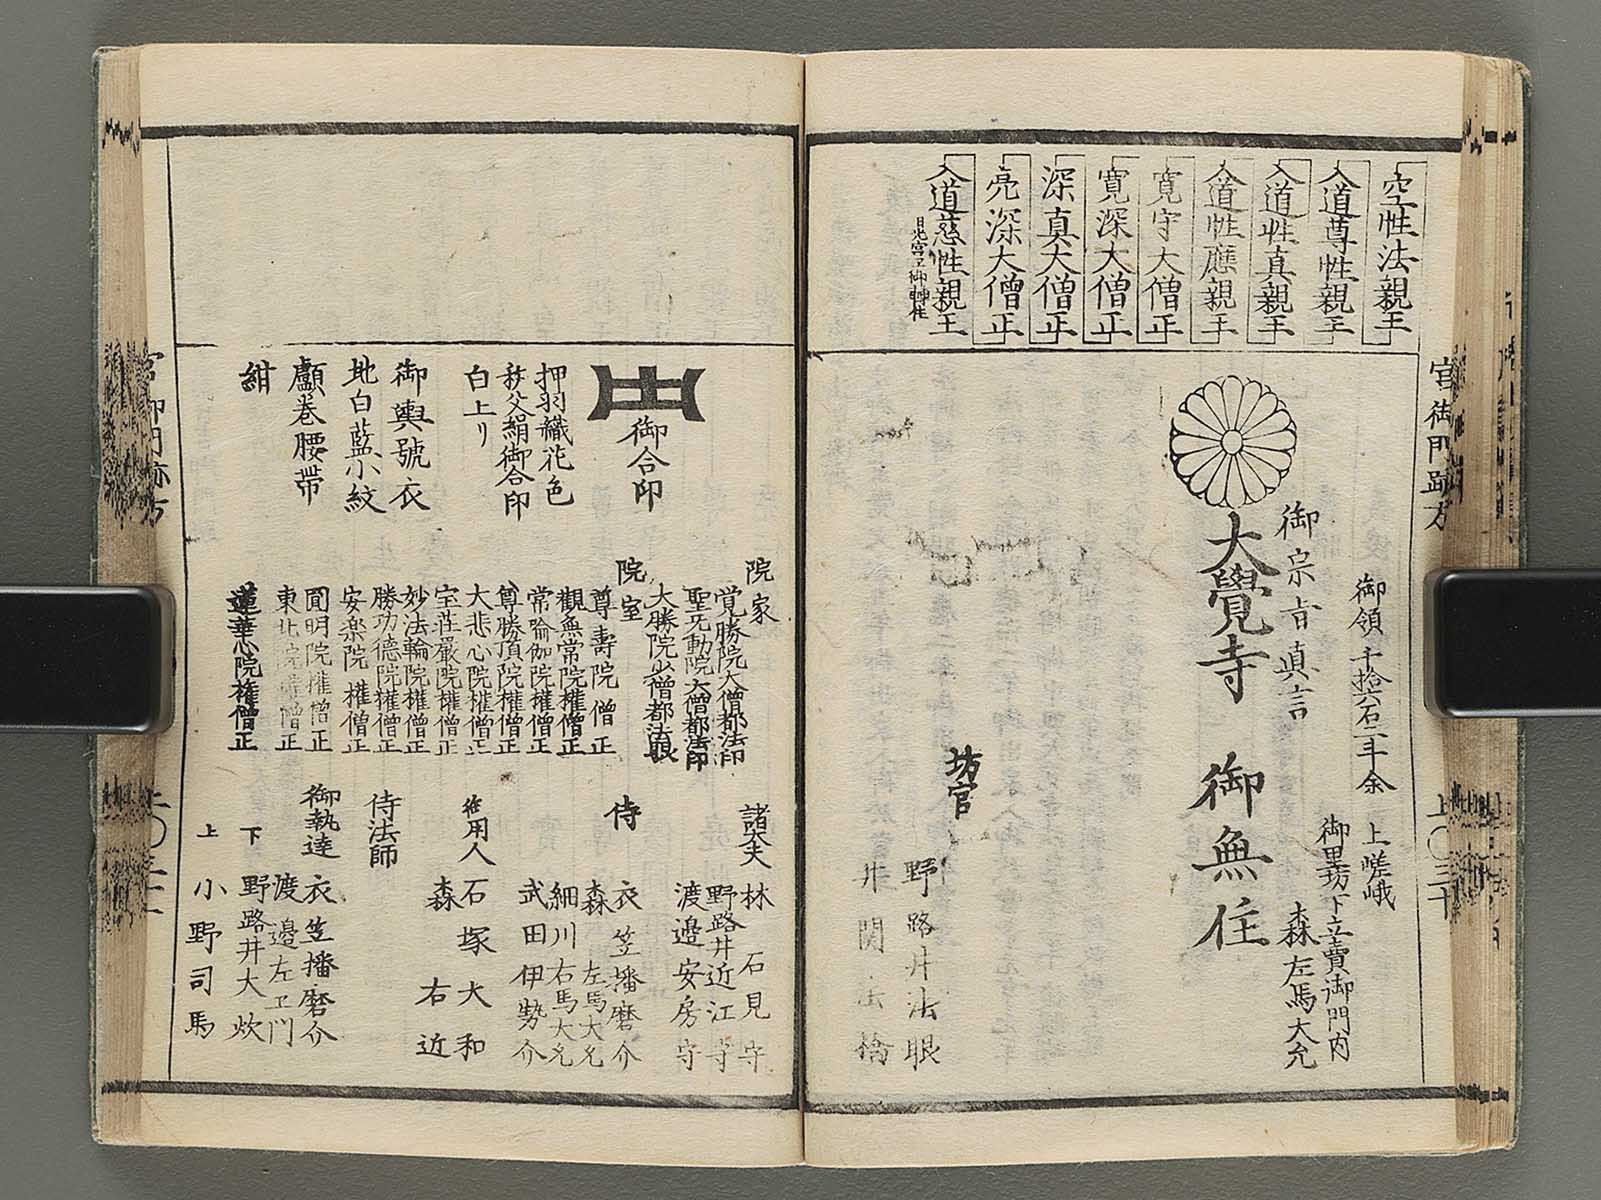 空性法親王
入道尊性親王
入道性真親王
入道性應親王
寛守大僧正
寛深大僧正
深真大僧正
亮深大僧正
入道慈性親王
宮御門跡方
御領千拾六石二斗余
上嵯峨
御里坊下立賣御門内
森左馬大允
御宗旨真言
大覺寺 御無住
坊官
野路井法眼
井関法橋
御合印
押羽織花色
秩父絹御合印
白上リ
御輿號衣
地白藍小紋
顱巻腰帯
紺
院家
覚勝院大僧都法印
聖无動院大僧都法印
大勝院少僧都法眼
院室
尊壽院僧正
觀無常院權僧正
常喩伽院權僧正
尊勝頂院權僧正
大悲心院權僧正
宝荘嚴院權僧正
妙法輪院權僧正
勝功徳院權僧正
安楽院權僧正
圓明院權僧正
東北院權僧正
蓮華心院權僧正
諸大夫
林石見守
野路井近江守
渡邉安房守
侍
衣笠播磨介
森左馬大允
細川右馬大允
武田伊勢介
御用人
石塚大和
森右近
侍法師
御執達
衣笠播磨介
渡邉左ヱ門
下
野路井大炊
上
小野司馬
宮御門跡方